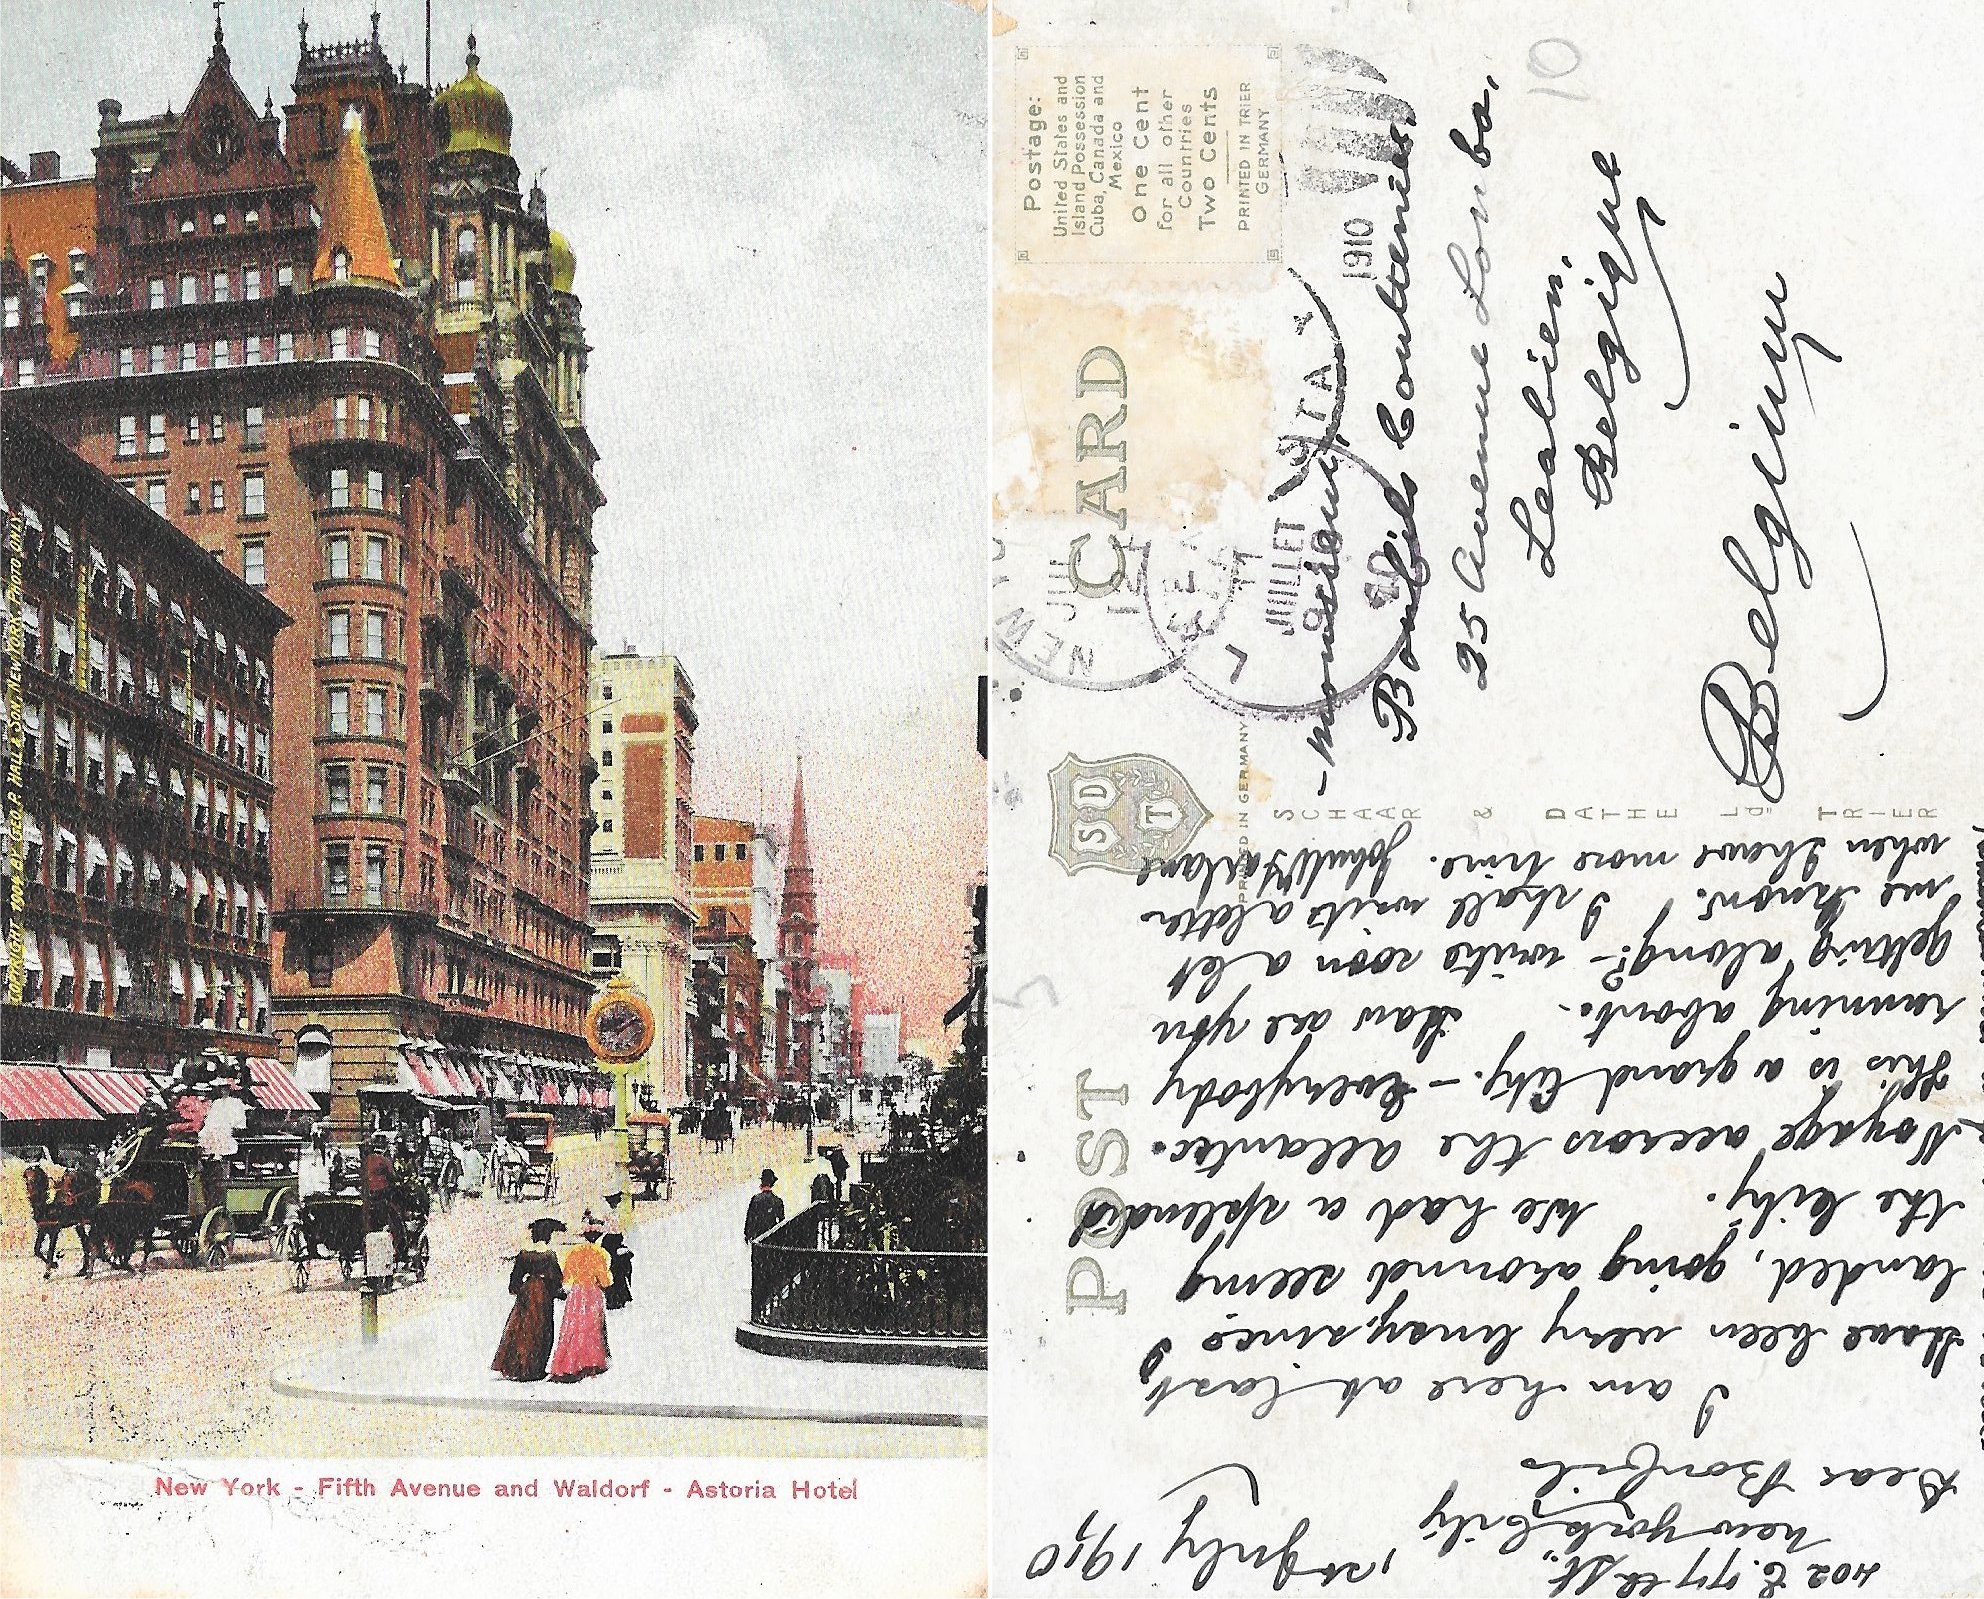 COPYRIGHT 1904 BY GEO. P. HALL & SON, NEW YORK. PHOTO ONLY.
New York - Fifth Avenue and Waldorf - Astoria Hotel
POST CARD
Postage:
United States and
Island Possession
Cuba, Canada and
Mexico
One Cent
for all other
Countries
Two Cents
PRINTED IN TRIER
GERMANY
S D
T
PRINTED IN GERMANY
SCHAAR & DATHE Ld TRIER
NEW YO
JUL
STA.
1910
7
JUILLET
1910
10
- Monsieur,
Bonfils Coultenier.
25 Avenue Lom ba.
Belgique
Belgium
402 E. 77 th St.,
New York City
1st July 1910
Dear Bonfils
I am here at last
Have been very busy, since I
landed, going around seeing
the City. We had a splendid
Voyage accross the atlantic.
This is a grand City. - Everybody
running about. How are you
getting along? - write soon & let
me know. I shall write a letter
when I have more time.